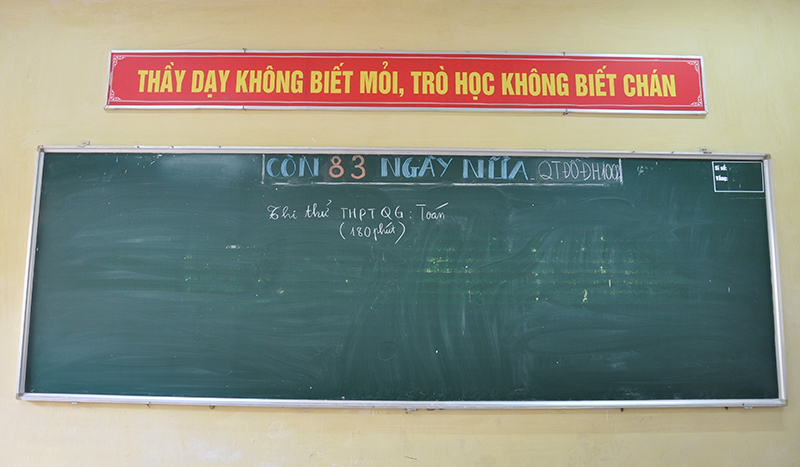 THẦY DẠY KHÔNG BIẾT MỎI, TRÒ HỌC KHÔNG BIẾT CHÁN
CÒN 83 NGÀY NỮA_ QT ĐỖ ĐH 100%
Sĩ số:
Vắng:
Thi thử THPT QG: Toán
(180 phút)